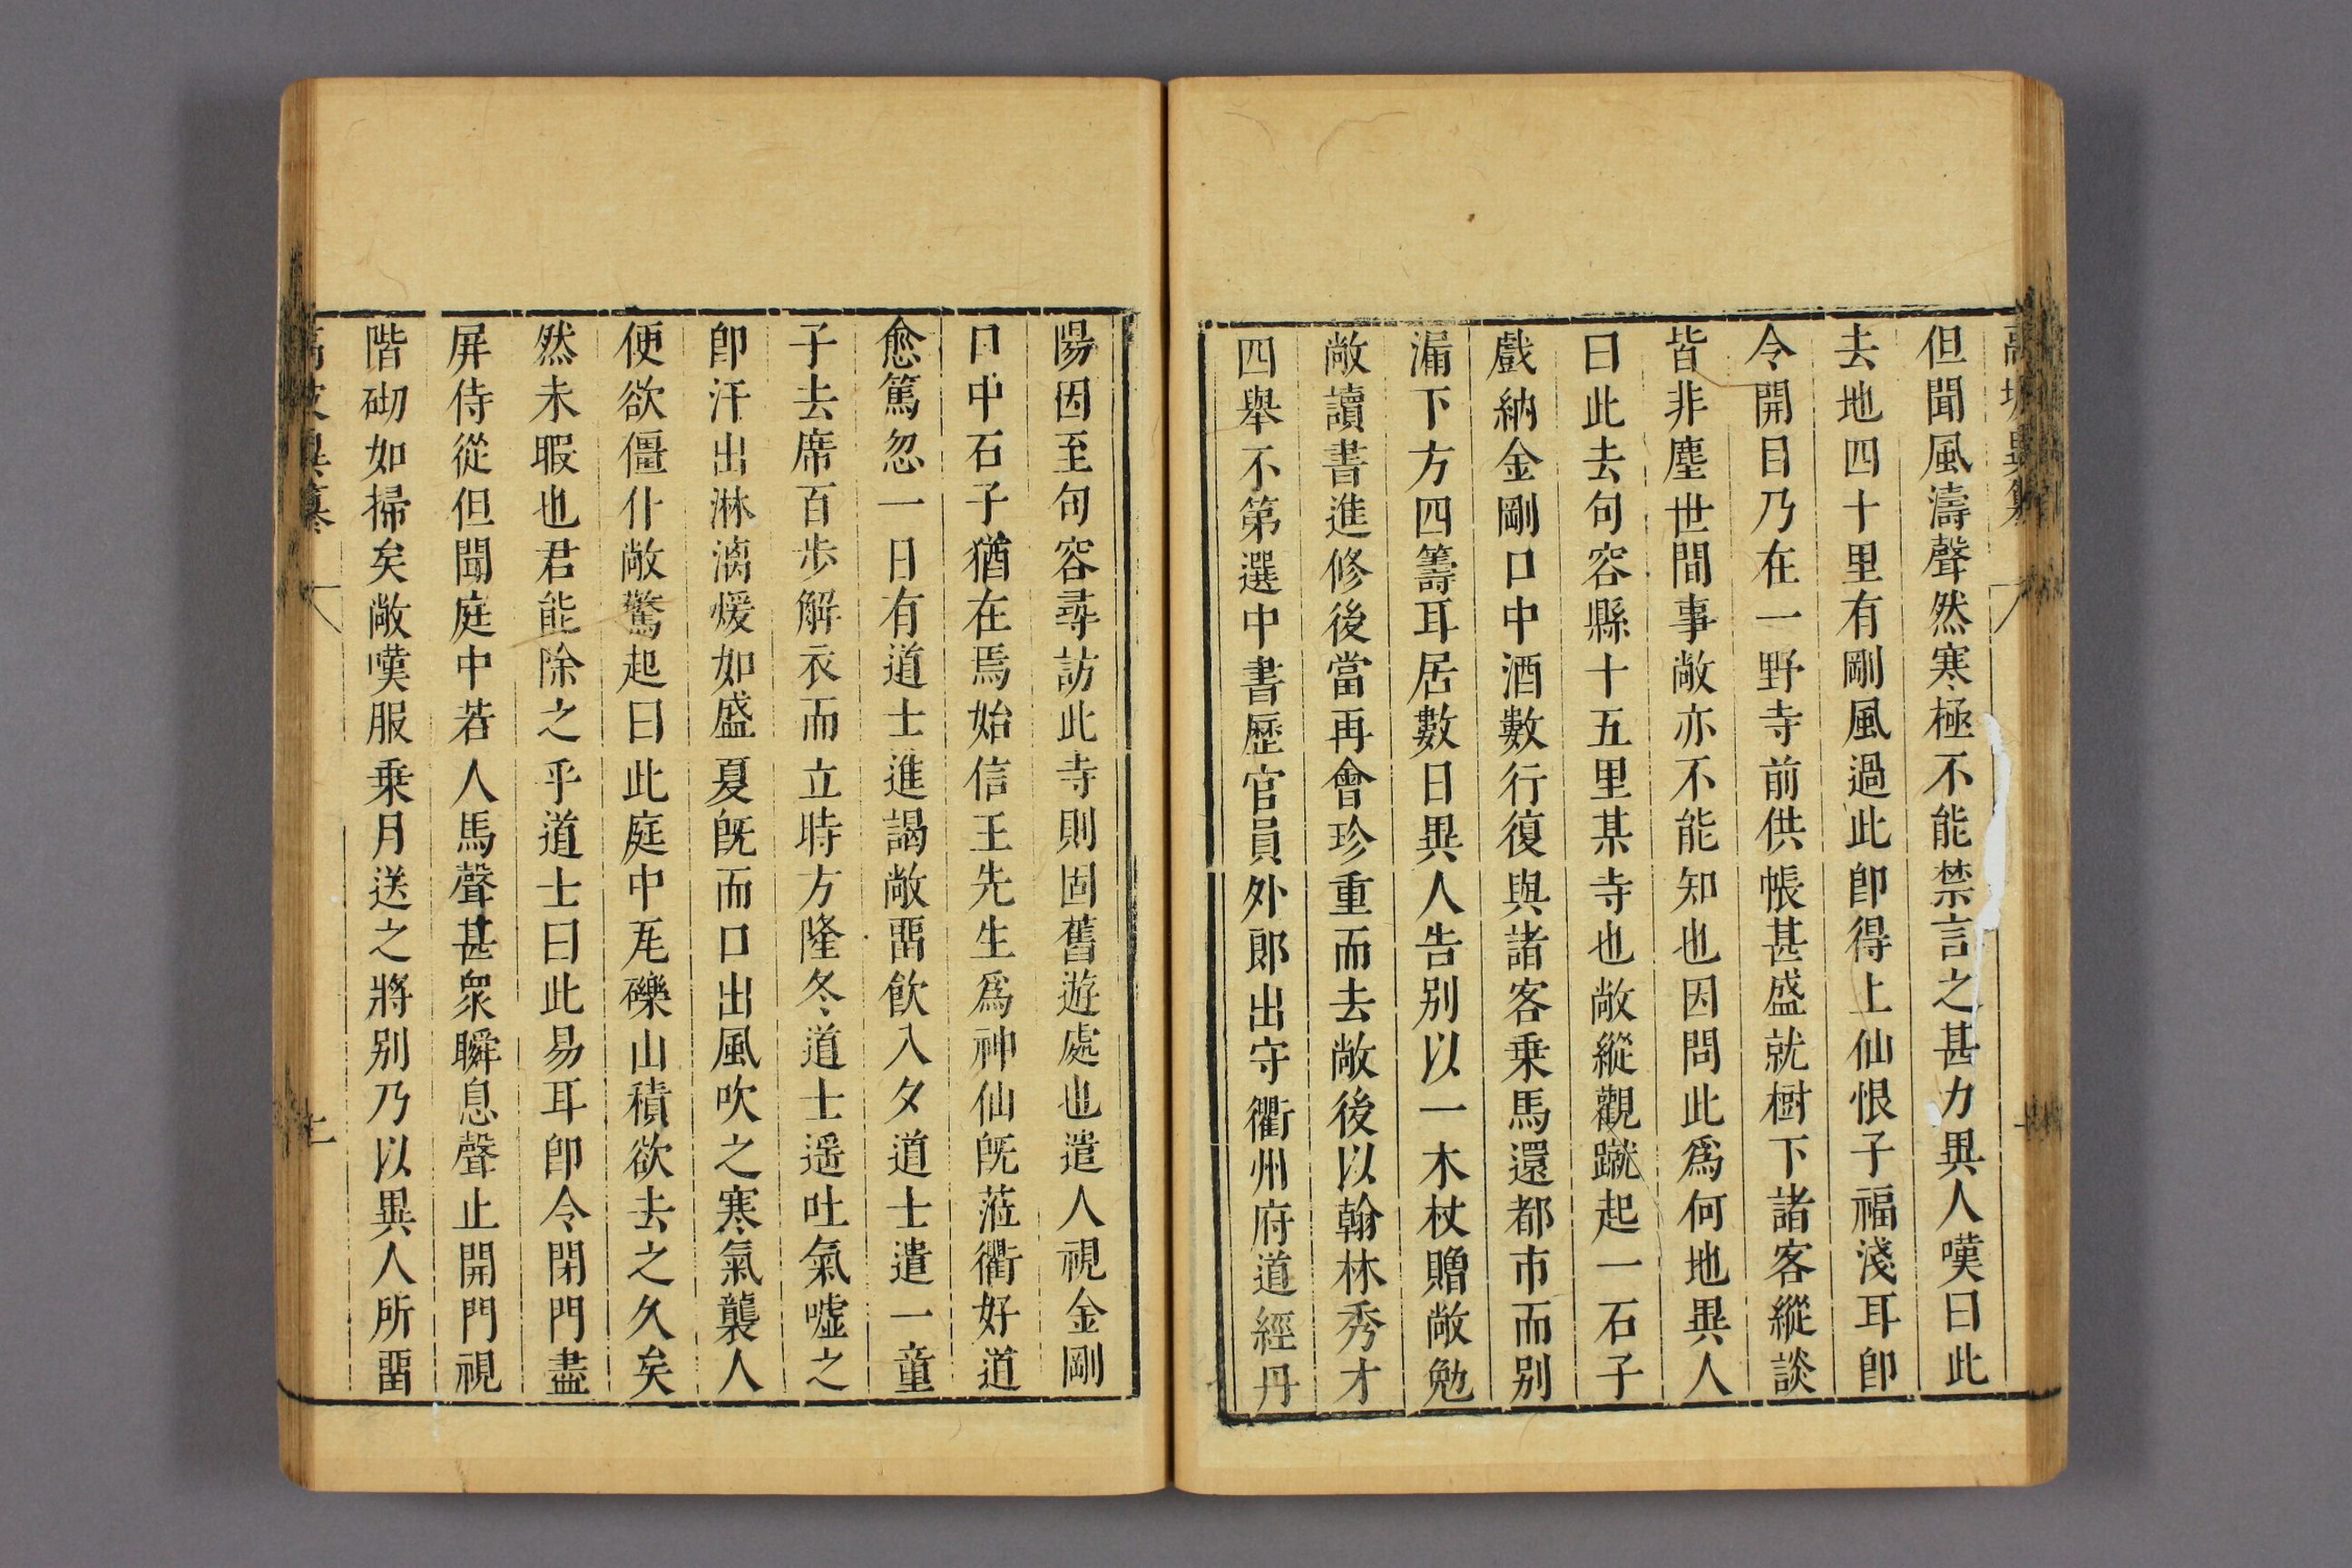 但聞風濤聲然寒極不能禁言之甚力異人嘆曰此
去地四十里有剛風過此卽得上仙恨子福淺耳卽
令開目乃在一野寺前供帳甚盛就樹下諸客縱談
皆非塵世間事敞亦不能知也因問此爲何地異人
曰此去句容縣十五里某寺也敞縱觀蹴起一石子
戲納金剛口中酒數行復與諸客乗馬還都市而别
漏下方四籌耳居數日異人告别以一木杖贈敞勉
敞讀書進修後當再會珍重而去敞後以翰林秀才
四舉不第選中書歷官員外郎出守衢州府道經丹
陽因至句容尋訪此寺則固舊遊處也遣人視金剛
口中石子猶在焉始信王先生爲神仙旣蒞衢好道
愈篤忽一日有道士進謁敞畱飲入夕道士遣一童
子去席百步解衣而立時方隆冬道士遥吐氣噓之
卽汗出淋漓煖如盛夏旣而口出風吹之寒氣襲人
便欲僵仆敞驚起曰此庭中瓦礫山積欲去之久矣
然未暇也君能除之乎道士曰此易耳卽令閉門盡
屏侍從但聞庭中若人馬聲甚衆瞬息聲止開門視
階砌如掃矣敞嘆服乗月送之將别乃以異人所畱